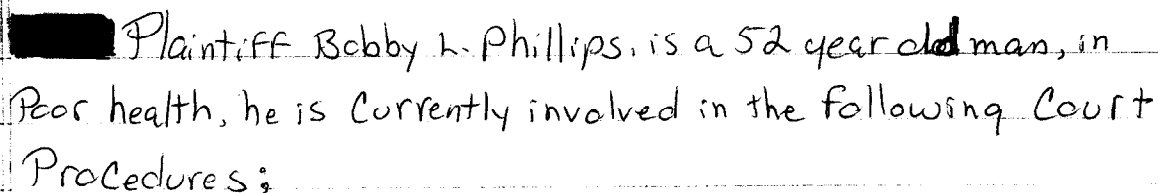 Plaintiff Bobby L. Phillips, is a 52 year old man, in
Poor health, he is Currently involved in the following Court
Procedures;